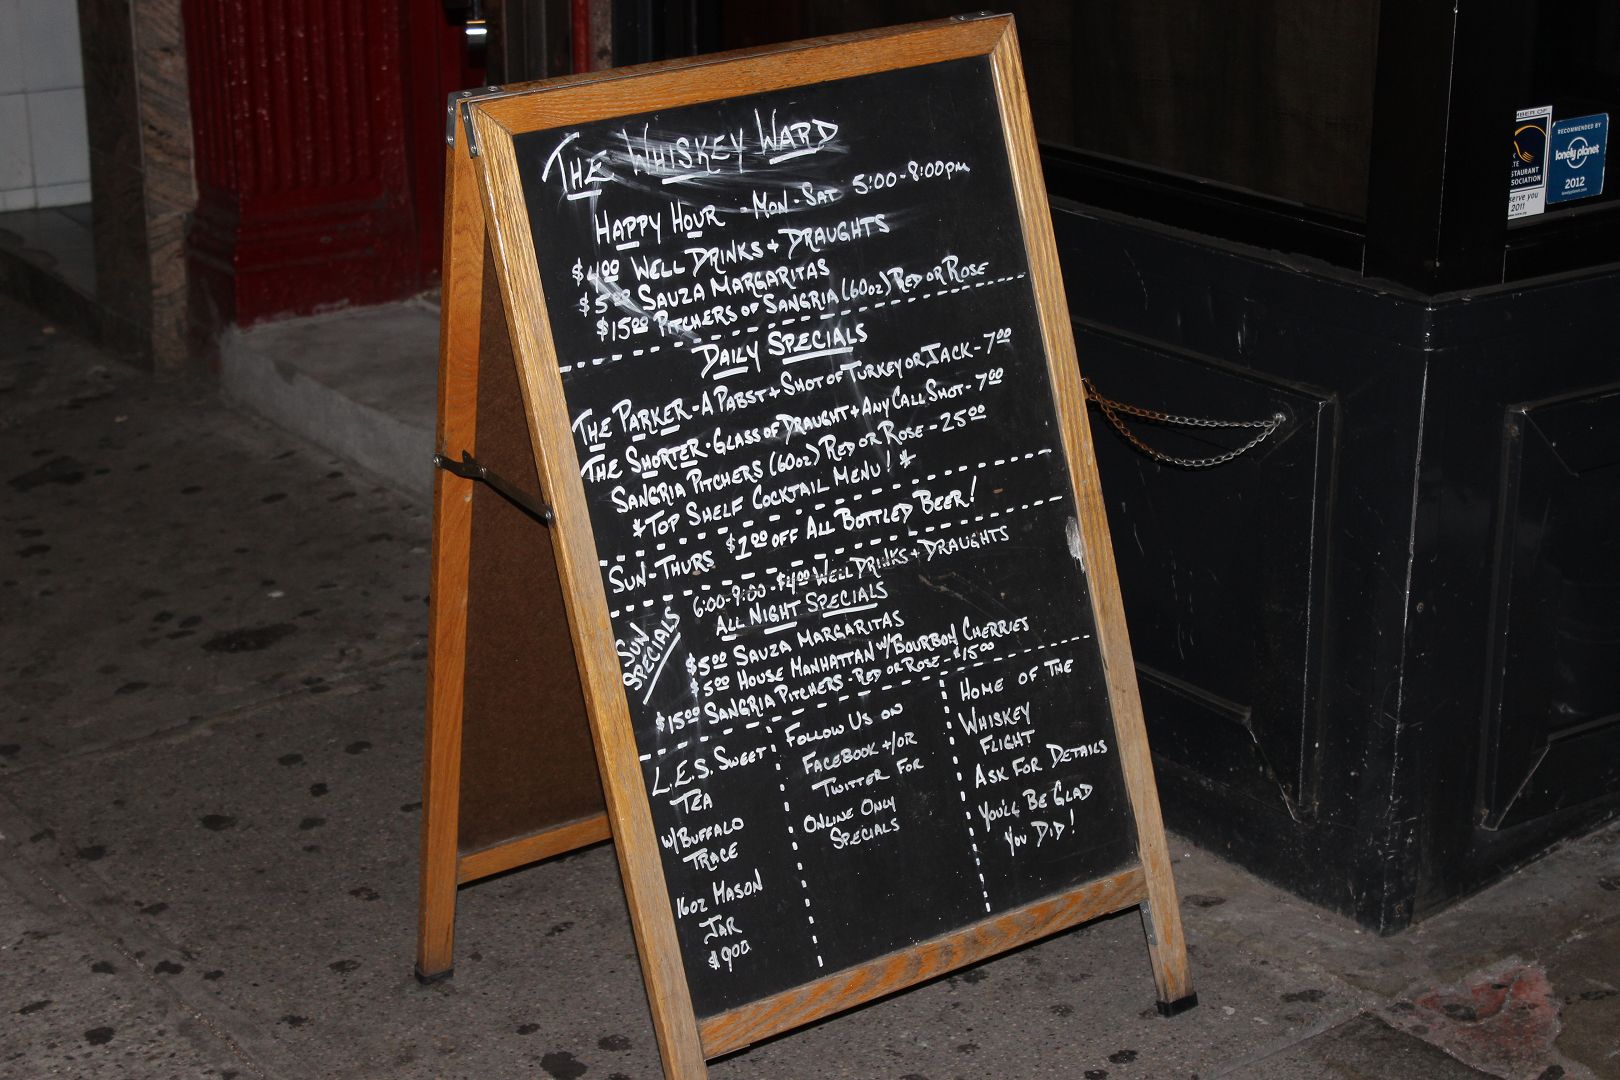 THE WHISKEY WARD
HAPPY HOUR - MON - SAT 5:00-8:00pm
$4.00 WELL DRINKS + DRAUGHTS
$5.00 SAUZA MARGARITAS
$15.00 PITCHERS OF SANGRIA (60oz) RED OR ROSE
DAILY SPECIALS
THE PARKER - A PABST + SHOT OF TURKEY OR JACK - 7.00
THE SHORTER - GLASS OF DRAUGHT + ANY CALL SHOT - 7.00
SANGRIA PITCHERS (60oz) RED OR ROSE - 25.00
*TOP SHELF COCKTAIL MENU! *
SUN-THURS $1.00 OFF ALL BOTTLED BEER!
SUN SPECIALS
6:00-9:00 - $4.00 WELL DRINKS + DRAUGHTS
ALL NIGHT SPECIALS
$5.00 SAUZA MARGARITAS
$5.00 HOUSE MANHATTAN W/BOURBON CHERRIES
$15.00 SANGRIA PITCHERS - RED OR ROSE - $15.00
L.E.S. SWEET
TEA
W/BUFFALO
TRACE
16oz MASON
JAR
$9.00
FOLLOW US ON
FACEBOOK +/OR
TWITTER FOR
ONLINE ONLY
SPECIALS
HOME OF THE
WHISKEY
FLIGHT
ASK FOR DETAILS
YOU'LL BE GLAD
YOU DID!
RECOMMENDED BY
lonely planet
2012
2011